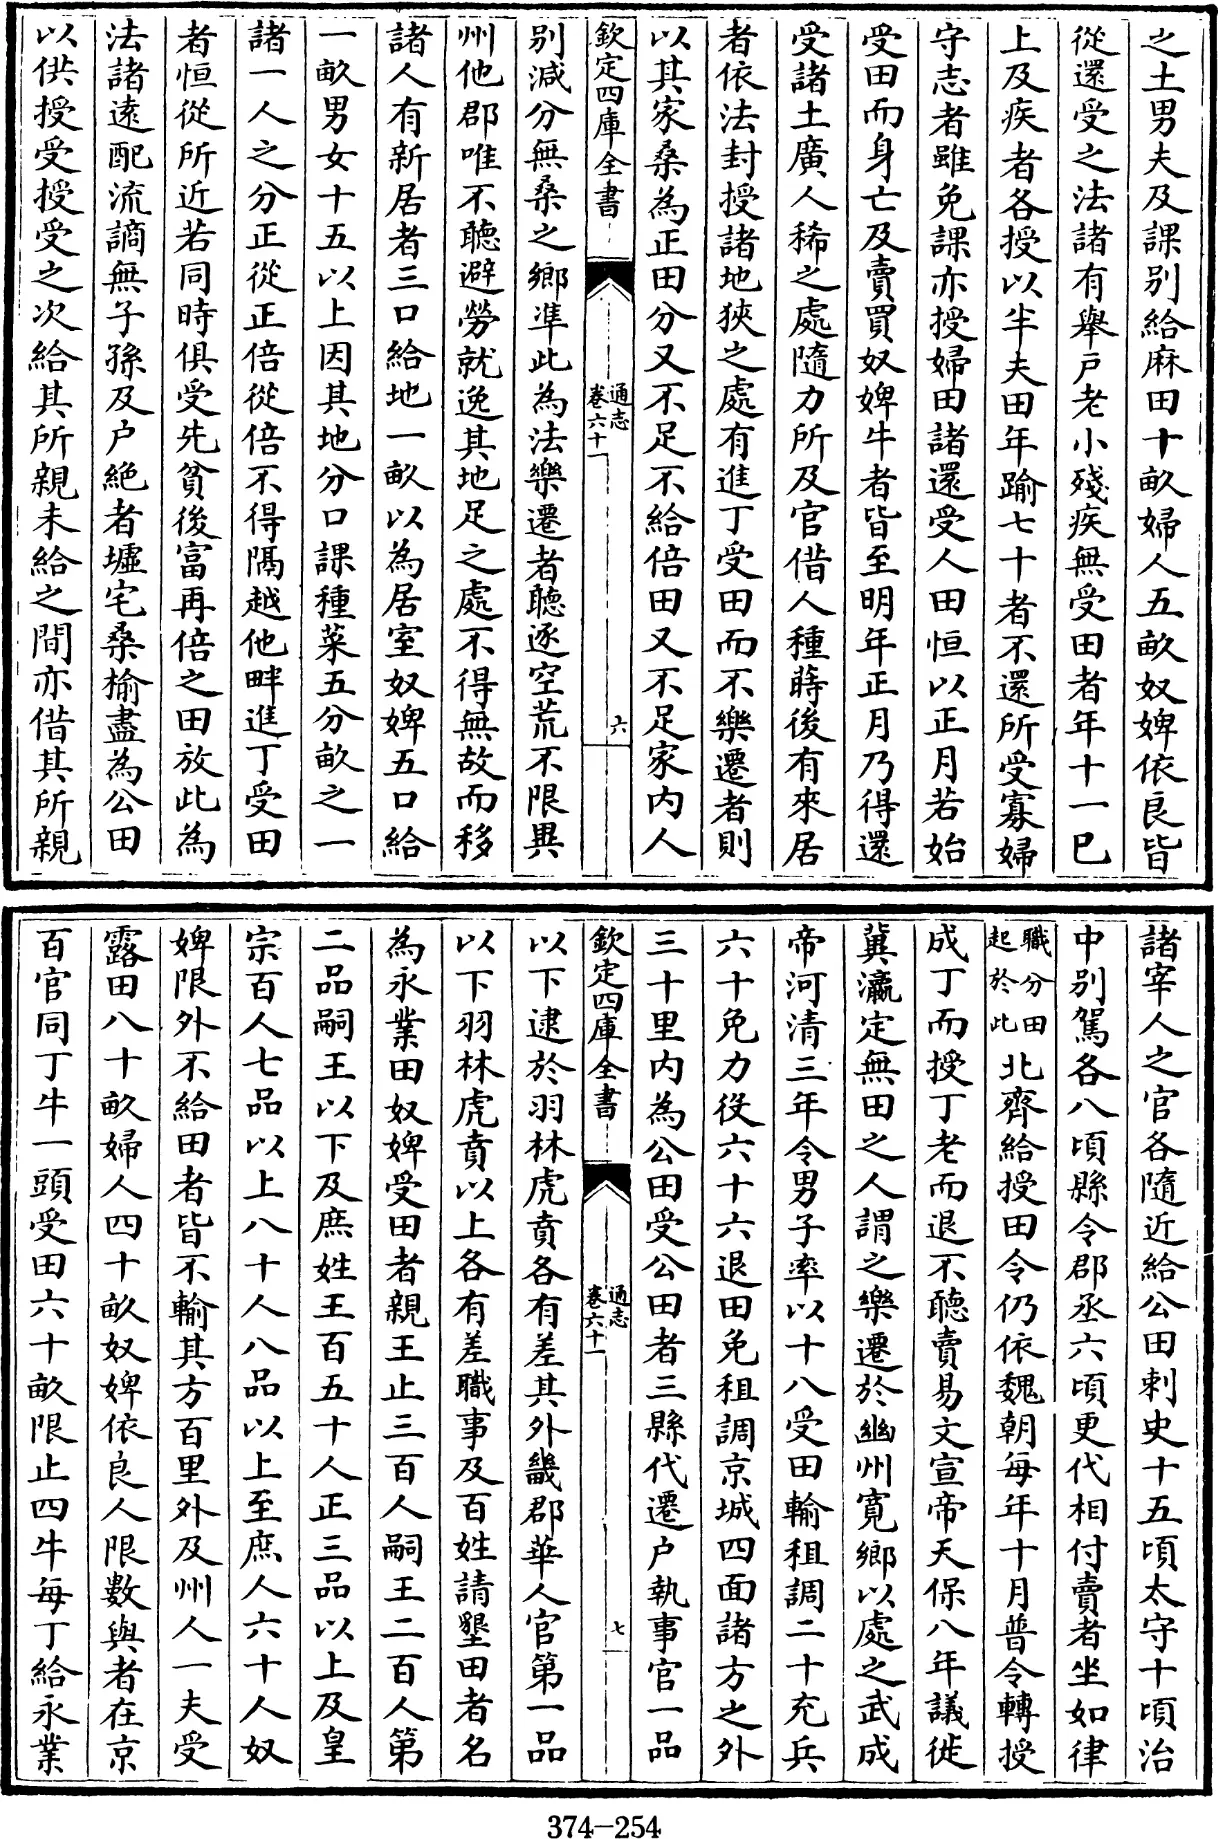 之土男夫及課别給麻田十畝婦人五畝奴婢依良皆
從還受之法諸有舉戸老小殘疾無受田者年十一已
上及疾者各授以半夫田年踰七十者不還所受寡婦
守志者雖免課亦授婦田諸還受人田恒以正月若始
受田而身亡及賣買奴婢牛者皆至明年正月乃得還
受諸土廣人稀之處隨力所及官借人種蒔後有來居
者依法封授諸地狹之處有進丁受田而不樂遷者則
以其家桑為正田分又不足不給倍田又不足家内人
欽定四庫全書
通志
卷六十一
六
别減分無桑之鄉準此為法樂遷者聽逐空荒不限異
州他郡唯不聽避勞就逸其地足之處不得無故而移
諸人有新居者三口給地一畝以為居室奴婢五口給
一畝男女十五以上因其地分口課種菜五分畝之一
諸一人之分正從正倍從倍不得隔越他畔進丁受田
者恒從所近若同時俱受先貧後富再倍之田放此為
法諸遠配流謫無子孫及户絶者墟宅桑榆盡為公田
以供授受授受之次給其所親未給之間亦借其所親
諸宰人之官各隨近給公田刺史十五頃太守十頃治
中别駕各八頃縣令郡丞六頃更代相付賣者坐如律
職分田
起於此
北齊給授田令仍依魏朝每年十月普令轉授
成丁而授丁老而退不聽賣易文宣帝天保八年議徙
冀瀛定無田之人謂之樂遷於幽州寛鄉以處之武成
帝河清三年令男子率以十八受田輸租調二十充兵
六十免力役六十六退田免租調京城四面諸方之外
三十里内為公田受公田者三縣代遷户執事官一品
欽定四庫全書
通志
卷六十一
七
以下逮於羽林虎賁各有差其外畿郡華人官第一品
以下羽林虎賁以上各有差職事及百姓請墾田者名
為永業田奴婢受田者親王止三百人嗣王二百人第
二品嗣王以下及庶姓王百五十人正三品以上及皇
宗百人七品以上八十人八品以上至庶人六十人奴
婢限外不給田者皆不輸其方百里外及州人一夫受
露田八十畝婦人四十畝奴婢依良人限數與者在京
百官同丁牛一頭受田六十畝限止四牛每丁給永業
374-254